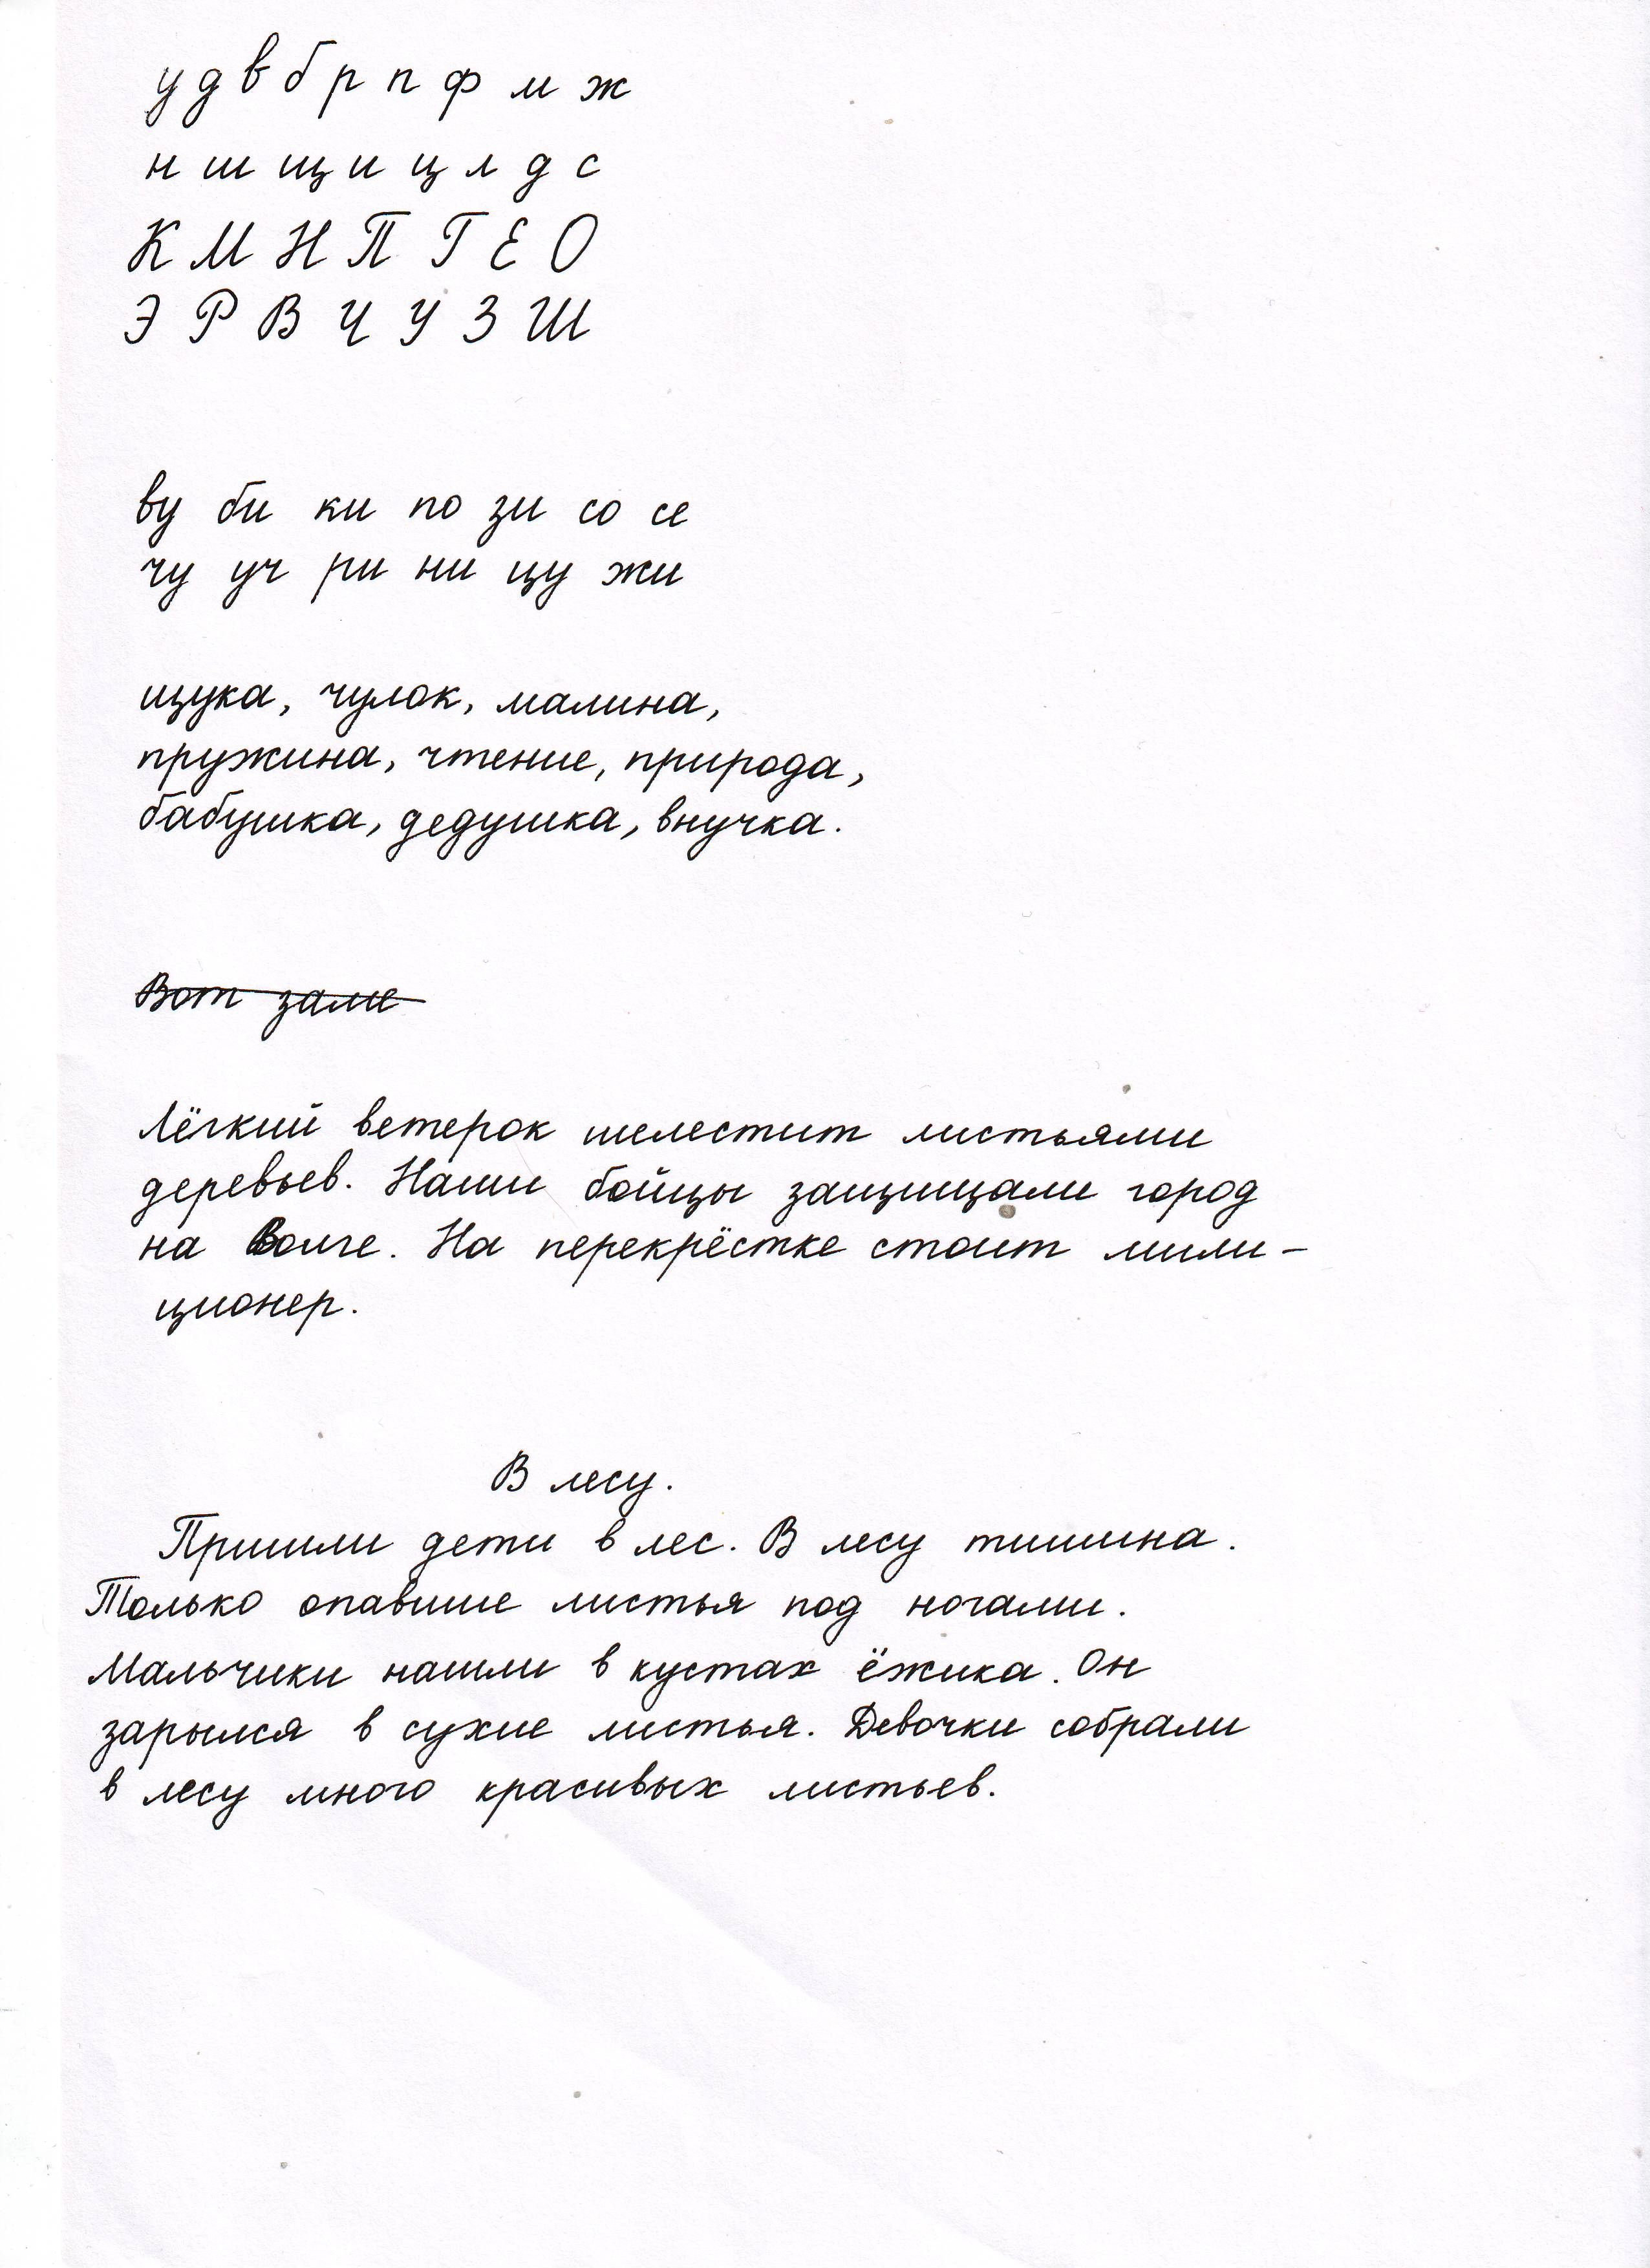 у д в б р п ф м ж
н ш щ и ц л д с
К М Н П Г Е О
Э Р В Ч У З Ш
ву би ки по зи со се
чу уч ри ни цу жи
щука, чулок, малина,
пружина, чтение, природа,
бабушка, дедушка, внучка.
Вот заме
Лёгкий ветерок шелестит листьями
деревьев. Наши бойцы защищали город
на Волге. На перекрёстке стоит мили-
ционер.
В лесу.
Пришли дети в лес. В лесу тишина.
Только опавшие листья под ногами.
Мальчики нашли в кустах ёжика. Он
зарылся в сухие листья. Девочки собрали
в лесу много красивых листьев.